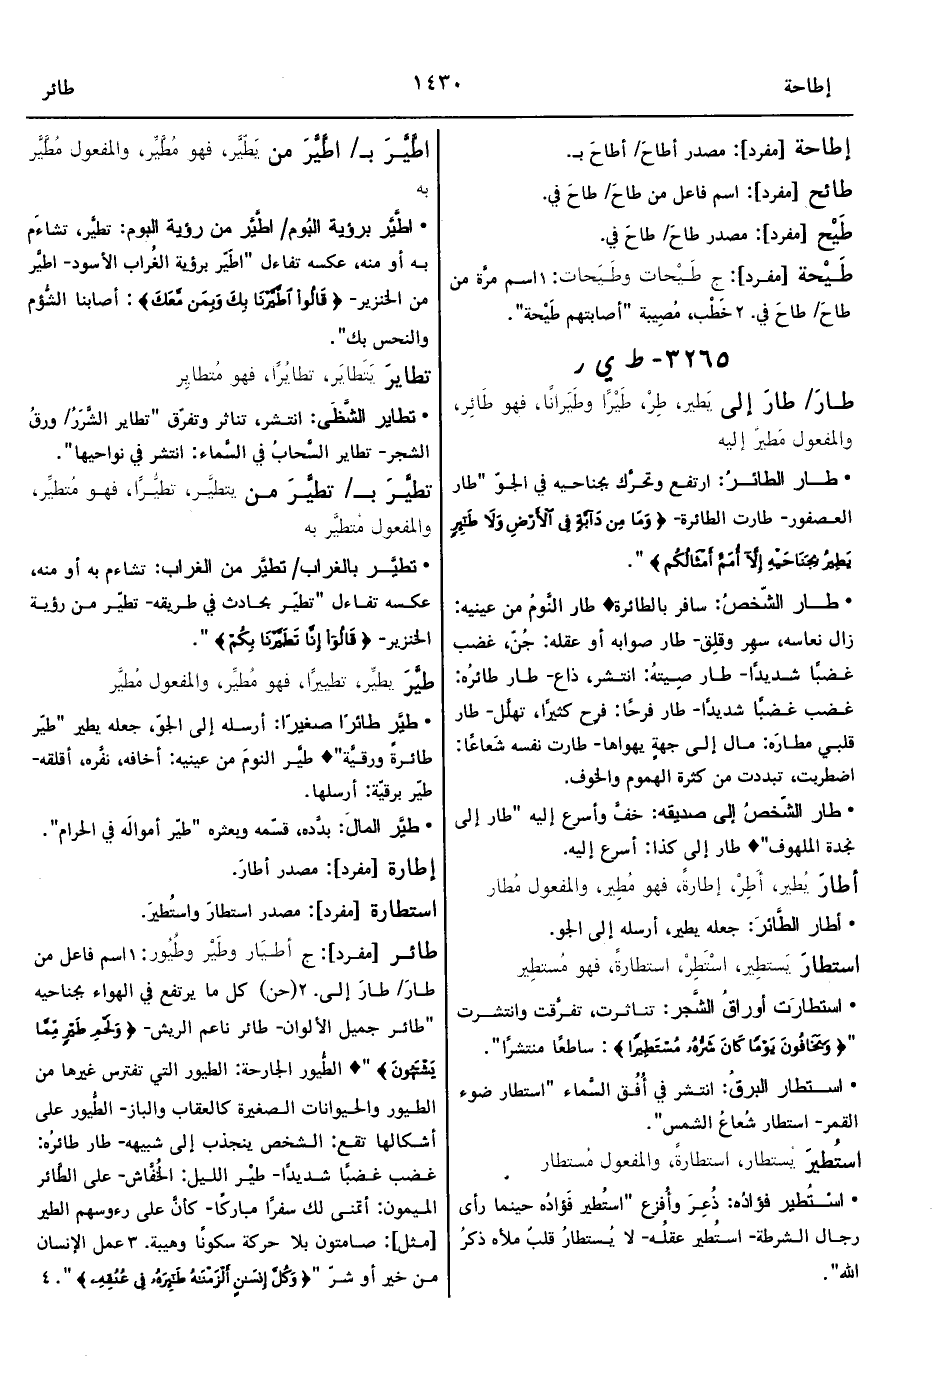 إطاحة
١٤٣٠
طائر
إطاحة [مفرد]: مصدر أطاحَ/ أطاحَ بـ.
طائح [مفرد]: اسم فاعل من طاحَ/ طاحَ في.
طَيْح [مفرد]: مصدر طاحَ/ طاحَ في.
طَيْحة [مفرد]: ج طَيْحات وطَيَحات: ١اسم مرَّة من
طاحَ/ طاحَ في. ٢ خَطْب، مُصِيبة "أصابتهم طَيْحة".
٣٢٦٥- ط ي ر
طـارَ/ طارَ إلى يَطير، طِرْ، طَيْرًا وطَيَرانًا، فهو طائِر،
والمفعول مَطيرٌ إليه
• طـار الطائـرُ: ارتفع وتحرَّك بجناحيه في الجوّ "طار
العصفور- طارت الطائرة- ﴿ وَمَا مِن دَآبَّةٍ فِي ٱلْأَرْضِ وَلَا طَٰٓئِرٍ
يَطِيرُ بِجَنَاحَيْهِ إِلَّآ أُمَمٌ أَمْثَالُكُم ﴾ ".
• طـار الشّخصُ: سافر بالطائرة♦ طار النَّومُ من عينيه:
زال نعاسه، سهر وقلِق- طار صوابه أو عقله: جُنّ، غضب
غضبًا شديدًا- طـار صِيتهُ: انتشر، ذاع- طـار طائرُه:
غضب غضبًا شديدًا- طار فرحًا: فرح كثيرًا، تهلّل- طار
قلبي مطارَه: مـال إلـى جهةٍ يهواها- طارت نفسه شَعاعًا:
اضطربت، تبددت من كثرة الهموم والخوف.
• طار الشّخصُ إلى صديقه: خفَّ وأسرع إليه "طار إلى
نجدة الملهوف"♦ طار إلى كذا: أسرع إليه.
أطارَ يُطير، أَطِرْ، إطارةً، فهو مُطِير، والمفعول مُطار
• أطار الطَّائرَ: جعله يطير، أرسله إلى الجو.
استطارَ يَستطير، اسْتَطِرْ، استطارةً، فهو مُستطِير
• استطارَت أوراقُ الشَّجر: تناثرت، تفرَّقت وانتشرت
"﴿ وَيَخَافُونَ يَوْمًا كَانَ شَرُّهُۥ مُسْتَطِيرًا ﴾ : ساطعًا منتشرًا".
• اسـتطار البرقُ: انتشر في أُفُق السَّماء "استطار ضوء
القمر- استطار شُعاعُ الشمس".
استُطيرَ يُستطار، استطارةً، والمفعول مُستطار
• اسْتُطير فؤادُه: ذُعِرَ وأُفزع "استُطير فَؤادُه حينما رأى
رجال الشرطة- استُطير عقلُه- لا يُستطارُ قلبٌ ملأه ذكرُ
الله".
اطَّيَّـرَ بـ/ اطَّيَّرَ من يَطَّيَّر، فهو مُطَّيِّر، والمفعول مُطَّيَّر
به
• اطيَّر برؤية البُوم/ اطيَّر من رؤية البوم: تطيَّر، تشاءَم
بـه أو منه، عكسه تفاءل "اطيَّر برؤية الغُراب الأسود- اطيَّر
من الخنزير- ﴿ قَالُواْ ٱطَّيَّرْنَا بِكَ وَبِمَن مَّعَكَ ﴾ : أصابنا الشُّؤم
والنحس بك".
تطايرَ يَتَطايَر، تطايُرًا، فهو مُتطايِر
• تطاير الشَّظَى: انتشر، تناثر وتفرّق "تطاير الشَّرَرُ/ ورقُ
الشجر- تطاير السَّحابُ في السَّماء: انتشر في نواحيها".
تطيَّرَ بـ/ تطيَّرَ مـن يتطيَّـر، تطيُّـرًا، فهـو مُتطيِّر،
والمفعول مُتطيَّر به
• تطيَّـر بالغراب/ تطيَّر من الغراب: تشاءم به أو منه،
عكسه تفاءل "تطيّر بحادث في طريقه- تطيّر مـن رؤيـة
الخنزير- ﴿ قَالُوٓاْ إِنَّا تَطَيَّرْنَا بِكُمْ ﴾ ".
طيَّرَ يطيِّر، تطييرًا، فهو مُطيِّر، والمفعول مُطيَّر
• طيَّر طائرًا صغيرًا: أرسله إلى الجوّ، جعله يطير "طيّر
طائرةً ورقيَّة"♦ طيَّـر النومَ من عينيه: أخافه، نفَّره، أقلقه-
طيّر برقيّة: أرسلها.
• طيَّر المالَ: بدَّده، قسّمه وبعثره "طيّر أموالَه في الحرام".
إطارة [مفرد]: مصدر أطارَ.
استطارة [مفرد]: مصدر استطارَ واستُطيرَ.
طائـر [مفرد]: ج أطيَـار وطَيْر وطُيُور: ١اسم فاعل من
طـارَ/ طـارَ إلـى. ٢(حن) كل ما يرتفع في الهواء بجناحيه
"طائـر جميل الألوان- طائر ناعم الريش- ﴿ وَلَحْمِ طَيْرٍ مِّمَّا
يَشْتَهُونَ ﴾ "♦ الطُّيور الجارحة: الطيور التي تفترس غيرها من
الطيور والحيوانات الـصغيرة كالعقاب والباز- الطُّيور على
أشكالها تقـع: الـشخص ينجذب إلى شبيهه- طار طائرُه:
غضب غضبًا شديدًا- طيْـر الليل: الخُفَّاش- على الطَّائر
الميمون: أتمنى لك سفرًا مباركًا- كأنَّ على رءوسهم الطير
[مثل]: صامتون بلا حركة سكونًا وهيبة. ٣ عمل الإنسان
مـن خير أو شرّ "﴿ وَكُلَّ إِنسَٰنٍ أَلْزَمْنَٰهُ طَٰٓئِرَهُۥ فِي عُنُقِهِۦ ﴾ ". ٤